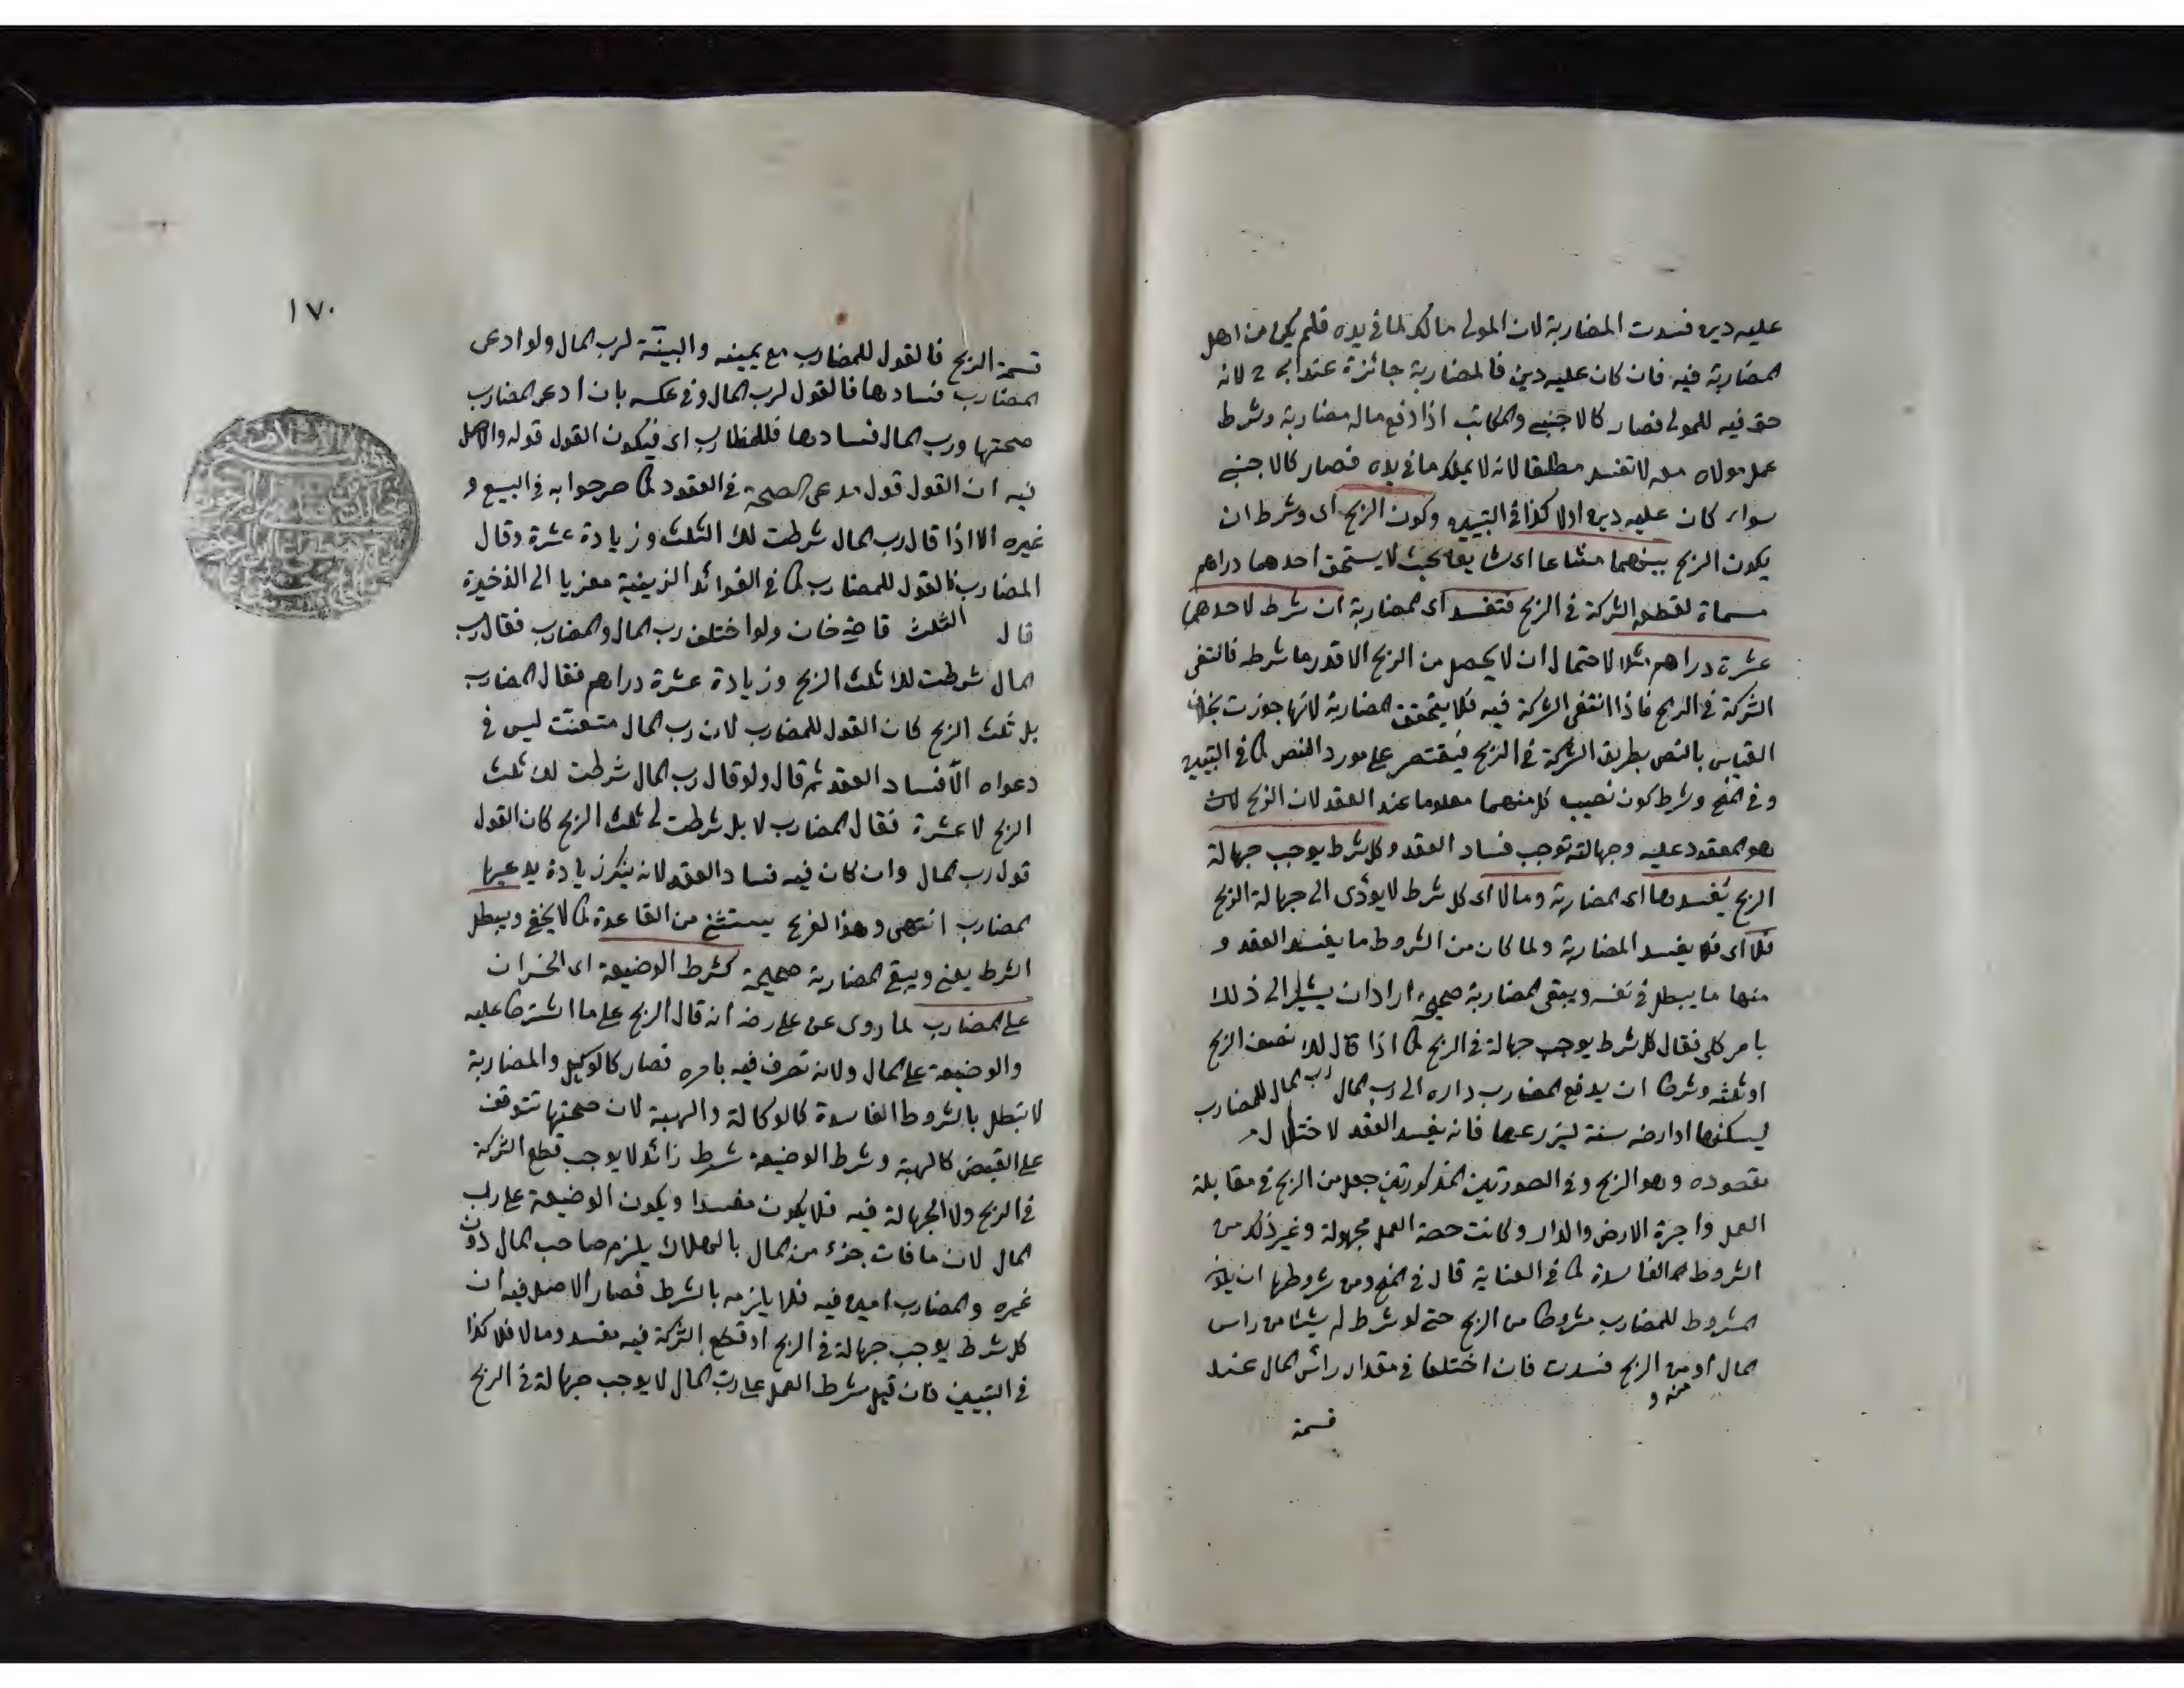 عليه دين فسدت المضاربة لان المولى مالك لما في يده فلم يكن من اهل
المضاربة فيه فان كان عليه دين فالمضاربة جائزة عند ابى ح لانه
حق فيه للمولى فصار كالاجنبى والمكاتب اذا دفع ماله مضاربة وشرط
عمل مولاه معه لا تفسد مطلقا لانه لا يملك ما في يده فصار كالاجنبى
سواء كان عليه دين اولا كذا في التبيين وكون الربح اى وشرط ان
يكون الربح بينهما مشاعا اى شايعا بحيث لا يستحق احدهما دراهم
مسماة لقطعه الشركة في الربح فتفسد اى المضاربة ان شرط لاحدهما
عشرة دراهم مثلا لاحتمال ان لا يحصل من الربح الا قدر ما شرطه فانتفى
الشركة في الربح فاذا انتفى الشركة فيه فلا يتحقق المضاربة لانها جوزت بخلاف
القياس بالنص بطريق الشركة في الربح فيقتصر على مورد النص كما في التبيين
وفي المنح وشرط كون نصيب كل منهما معلوما عند العقد لان الربح لان
هو المعقود عليه وجهالته توجب فساد العقد وكل شرط يوجب جهالة
الربح يفسدها اى المضاربة وما لا اى كل شرط لا يؤدى الى جهالة الربح
فلا اى فلا يفسد المضاربة ولما كان من الشروط ما يفسد العقد و
منها ما يبطل في نفسه ويبقى المضاربة صحيحة اراد ان يشير الى ذلك
بامر كلى فقال كل شرط يوجب جهالة في الربح كما اذا قال لك نصف الربح
او ثلثه وشرطا ان يدفع المضارب داره الى رب المال رب المال للمضارب
ليسكنها او ارضه سنة ليزرعها فانه يفسد العقد لاختلال
مقصوده وهو الربح وفي الصورتين المذكورتين جعل من الربح في مقابلة
العمل واجرة الارض والدار وكانت حصة العمل مجهولة وغير ذلك من
الشروط الفاسدة كما في العناية قال في المنح ومن شروطها ان يكون
المشروط للمضارب مشروطا من الربح حتى لو شرط له شيئا من راس
المال او من الربح فسدت فان اختلفا في مقدار رأس المال عند
منه و
قسمة
١٧٠
قسمة الربح فالقول للمضارب مع يمينه والبينة لرب المال ولو ادعى
المضارب فسادها فالقول لرب المال وفي عكسه بان ادعى المضارب
صحتها ورب المال فسادها فللمضارب اى فيكون القول قوله والاصل
فيه ان القول قول مدعى الصحة في العقود كما صرحوا به في البيع و
غيره الا اذا قال رب المال شرطت لك الثلث وزيادة عشرة وقال
المضارب فالقول للمضارب كما في الفوائد الزينية معزيا الى الذخيرة
قال الثلث قاضى خان ولو اختلف رب المال والمضارب فقال رب
المال شرطت لك ثلث الربح وزيادة عشرة دراهم فقال المضارب
بل ثلث الربح كان القول للمضارب لان رب المال متعنت ليس في
دعواه الا فساد العقد ثم قال ولو قال رب المال شرطت لك ثلث
الربح لا عشرة فقال المضارب لا بل شرطت لى ثلث الربح كان القول
قول رب المال وان كان فيه فساد العقد لانه ينكر زيادة يدعيها
المضارب انتهى وهذا الفرع يستثنى من القاعدة كما لا يخفى ويبطل
الشرط يعنى ويبقى المضاربة صحيحة كشرط الوضيعة اى الخسران
على المضارب لما روى عن على رضه انه قال الربح على ما اشترطا عليه
والوضيعة على المال ولانه تصرف فيه بامره فصار كالوكيل والمضاربة
لا تبطل بالشروط الفاسدة كالوكالة والهبة لان صحتها تتوقف
على القبض كالهبة وشرط الوضيعة شرط زائد لا يوجب قطع الشركة
في الربح ولا الجهالة فيه فلا يكون مفسدا ويكون الوضيعة على رب
المال لان ما فات جزء من المال بالهلاك يلزم صاحب المال دون
غيره والمضارب امين فيه فلا يلزمه بالشرط فصار الاصل فيه ان
كل شرط يوجب جهالة في الربح او قطع الشركة فيه مفسد وما لا فلا كذا
في التبيين فان قيل شرط العمل على رب المال لا يوجب جهالة في الربح